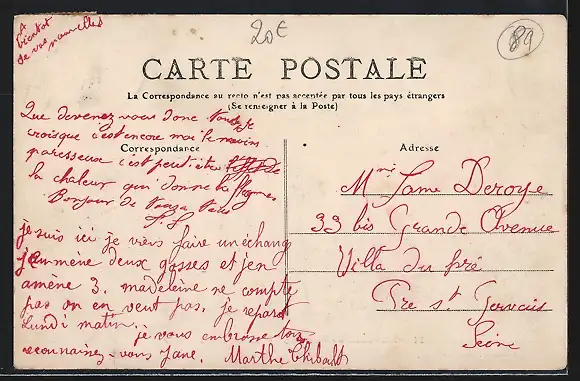 A
bientot
de vos nouvelles
20€
89
CARTE POSTALE
La Correspondance au recto n'est pas acceptée par tous les pays étrangers
(Se renseigner à la Poste)
Correspondance
Adresse
Que devenez vous donc
croisque c'est encore moi le moins
paresseux c'est peut être
la chaleur qui donne la flegme
Bonjour de
je suis ici je viens faire un échang
j'emmène deux gosses et j'en
amène 3. madeleine ne compte
pas on en veut pas. je repart
Lundi matin.
je vous embrasse tous
reconnaissez-vous Jane. Marthe Thibault
Mme Jame Deroye
33 bis Grande Avenue
Villa du pré
Pre st Gervais
Seine